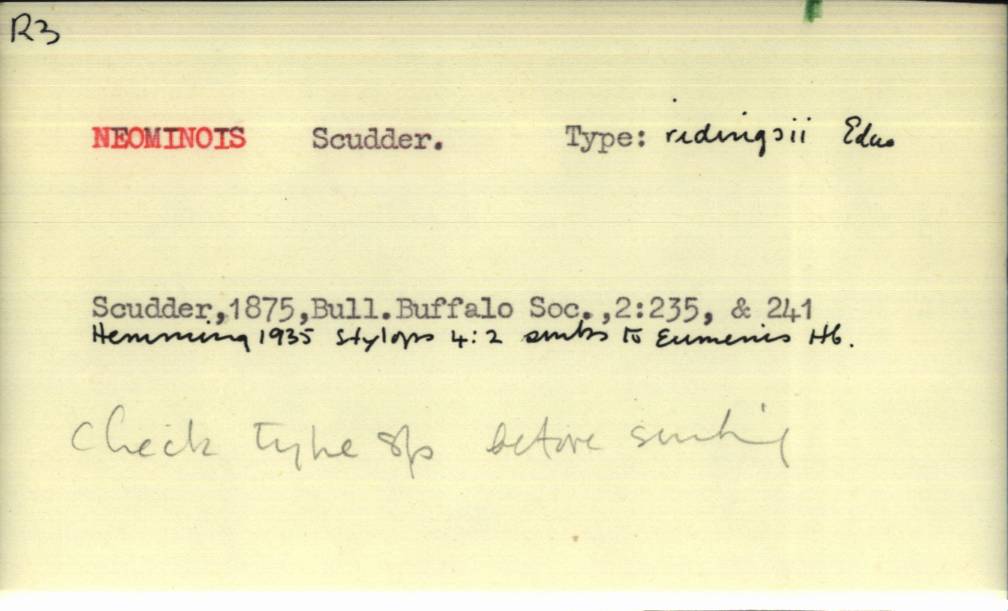 R3
NEOMINOIS Scudder. Type: ridingsii Edw.
Scudder,1875,Bull.Buffalo Soc.,2:235, & 241
Hemming 1935 Stylops 4:2 sinks to Eumenis Hb.
Check type sp before sinking